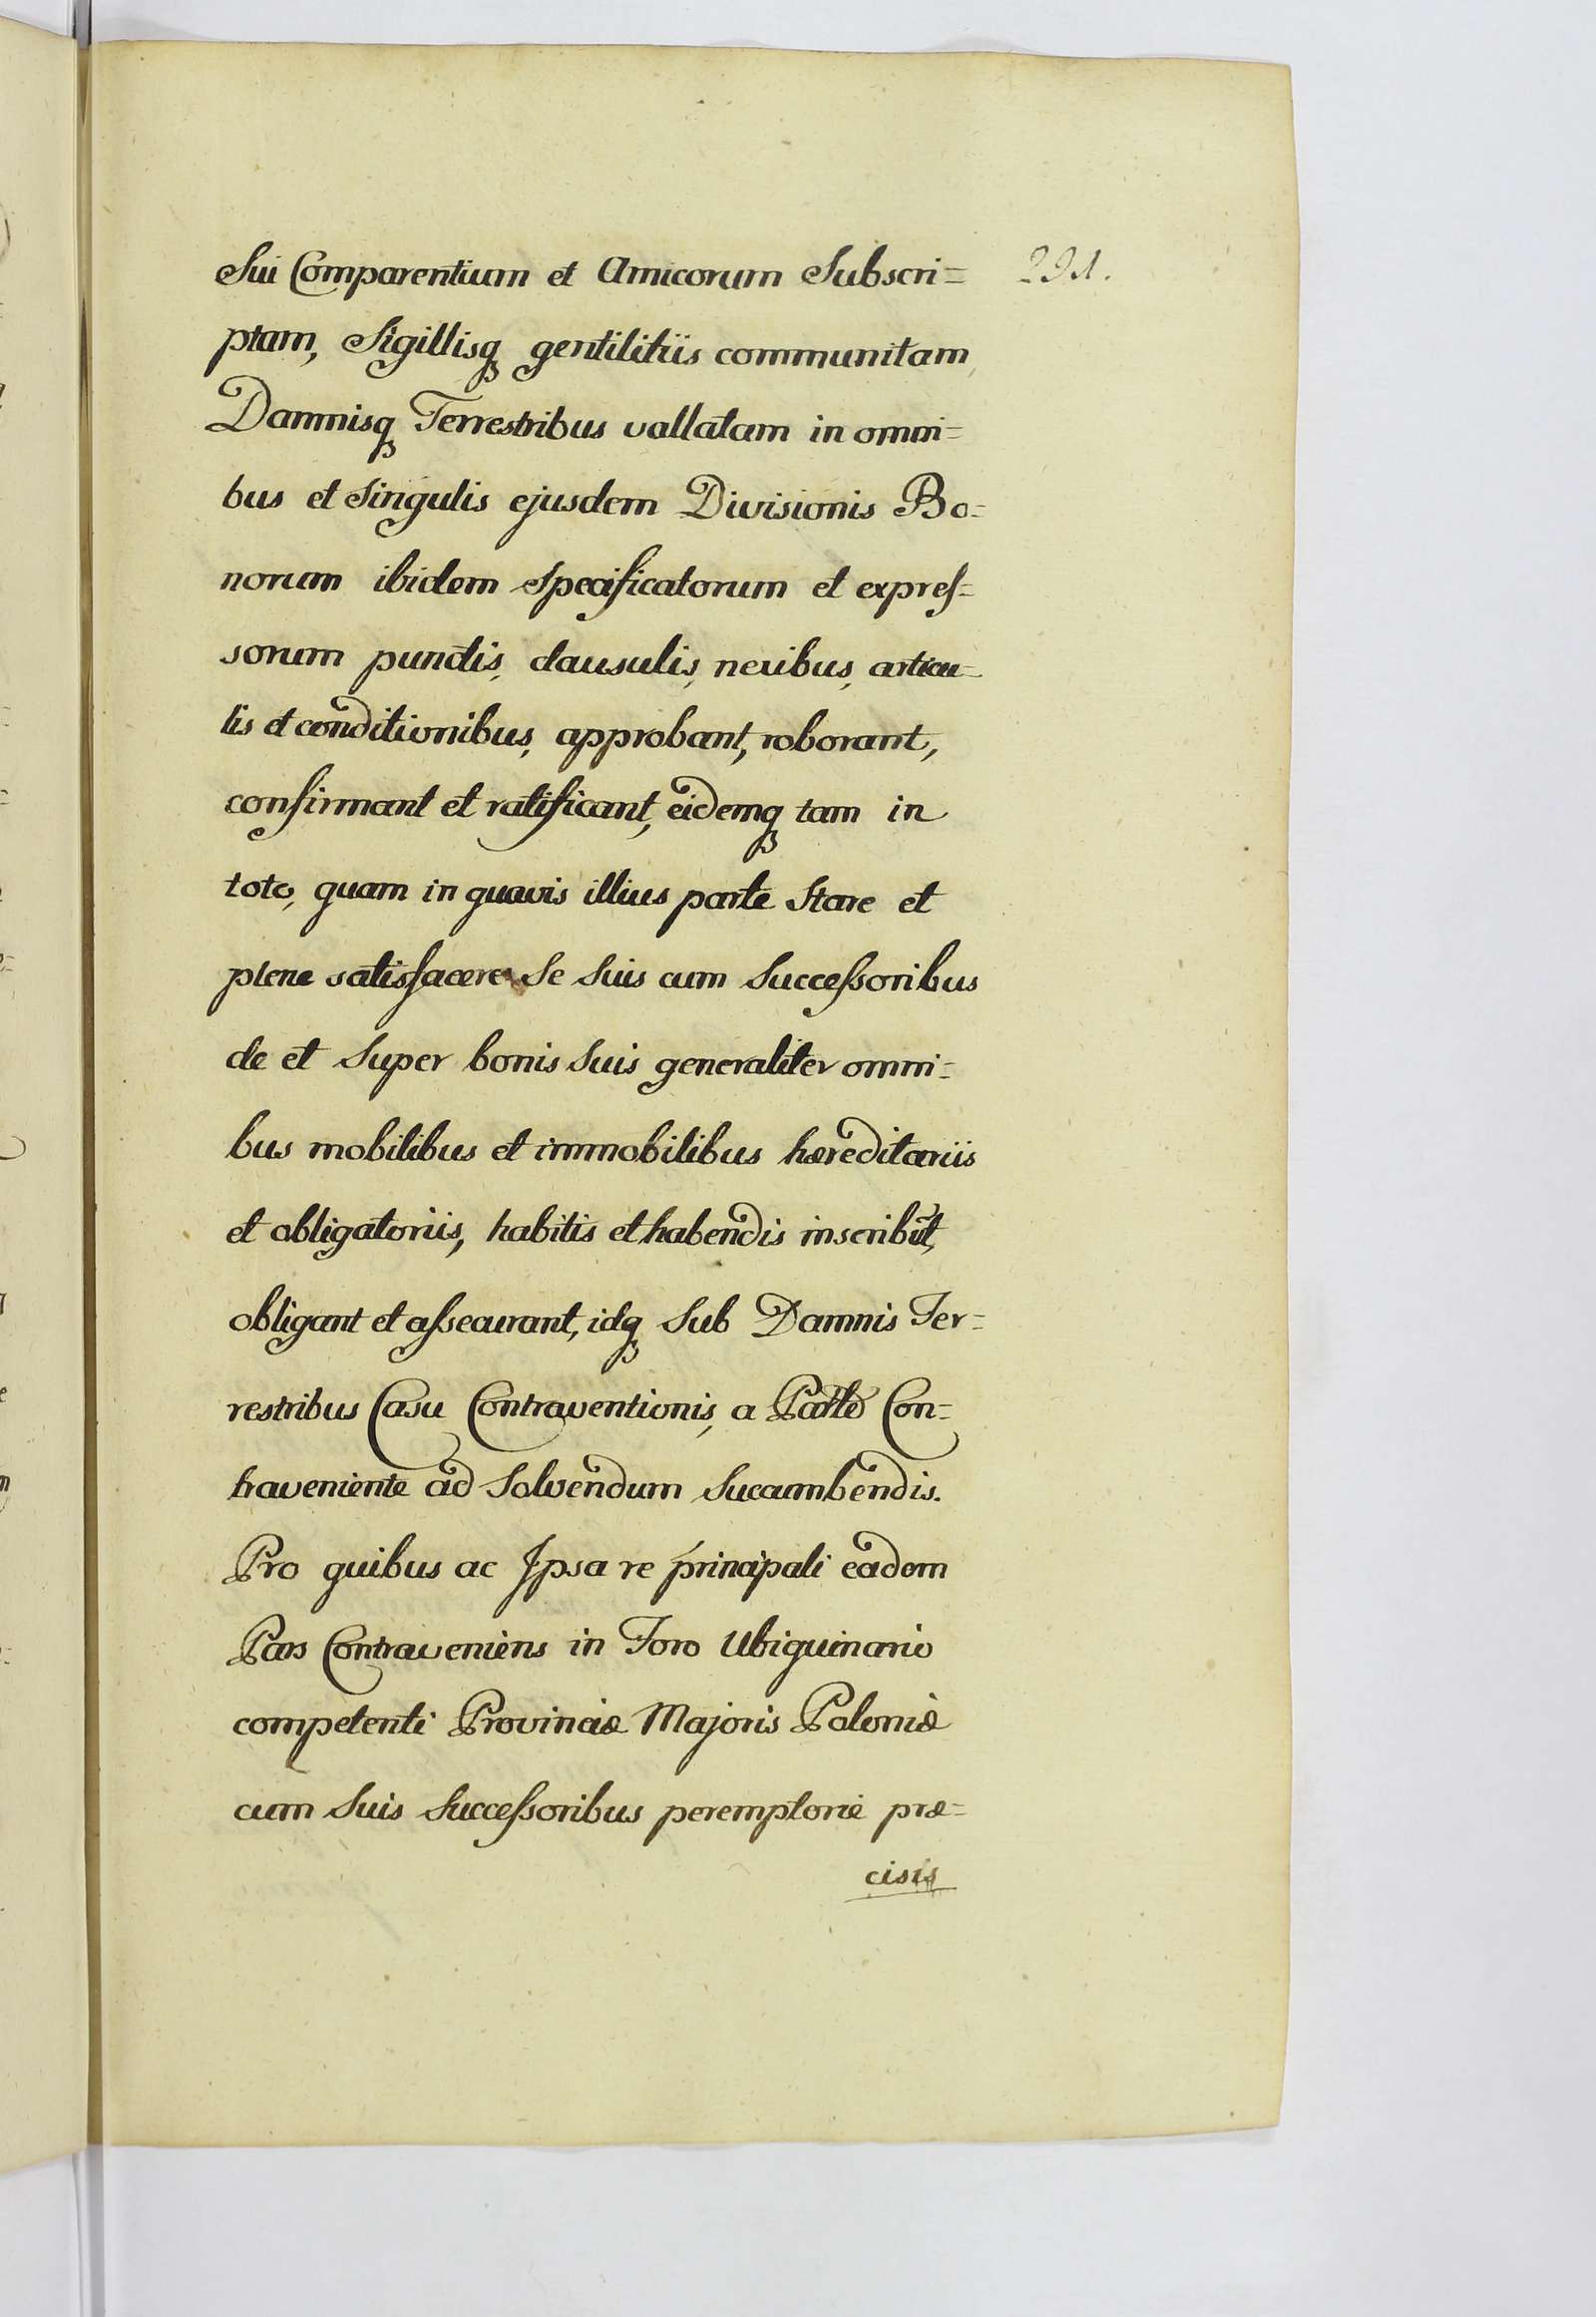 Sui Comparentium et Amicorum Subscri= 291.
ptam, Sigillisq gentilitiis communitam
Damnisq Terrestribus vallatam in omni=
bus et Singulis ejusdem Divisionis Bo=
norum ibidem Specificatorum et expreſ=
sorum punctis, clausulis, nexibus, articu=
lis et conditionibus, approbant, roborant,
confirmant et ratificant, eidemq tam in
toto, quam in quavis illius parte Stare et
plene satisfacere Se Suis cum Succeſsoribus
de et Super bonis Suis generaliter omni=
bus mobilibus et immobilibus hæreditariis
et obligatoriis, habitis et habendis inscribũt,
obligant et aſsecurant, idq Sub Damnis Ter=
restribus Casu Contraventionis, a Parte Con=
traveniente ad Solvendum Succumbendis.
Pro quibus ac Ipsa re principali eadem
Pars Contraveniens in Foro Ubiquinario
competenti Provinciæ Majoris Poloniæ
cum Suis Succeſsoribus peremptorie præ=
cisis